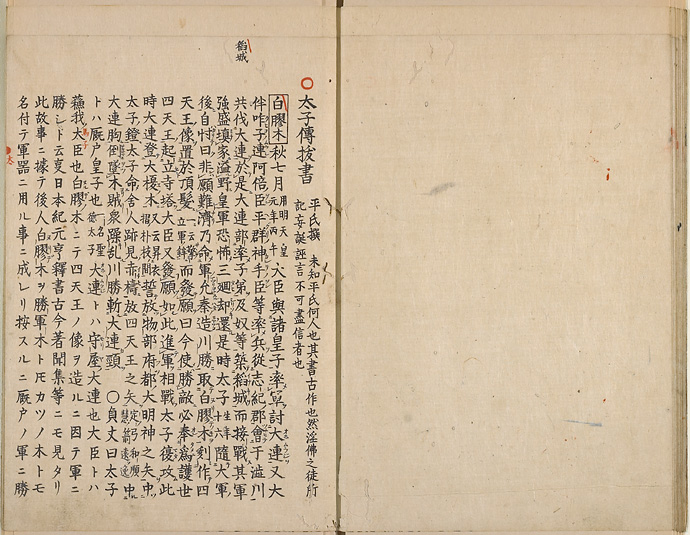 稻城
太子傳拔書
平氏撰 未知平氏何人也其書古作也然淫佛之徒所
記妄誕誣言不可盡信者也
白膠木秋七月用明天皇元年丙午大臣與諸皇子率軍討大連又大
伴咋子連阿倍臣平群神手臣等率兵從志紀郡會于澁川
共伐大連於是大連部率子第及奴等築稻城而接戰其軍
強盛填家溢野皇軍恐怖三廻却還是時太子生年十六隨大軍
後自忖曰非願難濟乃命軍允秦造川勝取白膠木刻作四
天王像置於頂髮一云擎立軍鋒而發願曰今使勝敵必奉爲護世
四天王起立寺塔大臣又發願如此進軍相戰太子復攻此
時大連登大榎木又云昇衣揩朴枝間誓放物部府都大明神之矢中
太子鐙太子命舍人跡見赤檮放四天王之矢定弓和順慧箭遠中
大連胸倒墜木賊衆躁乱川勝斬大連頭 〇貞丈曰太子
トハ厩戸皇子也一名聖徳太子大連トハ守屋大連也大臣トハ
蘓我大臣也白膠木ニテ四天王ノ像ヲ造ルニ因テ軍ニ
勝シト云亊日本紀元亨釋書古今著聞集等ニモ見タリ
此故事ニ據テ後人白膠木ヲ勝軍木トモカツノ木トモ
名付テ軍器ニ用ル事ニ成レリ按スルニ厩戸ノ軍ニ勝